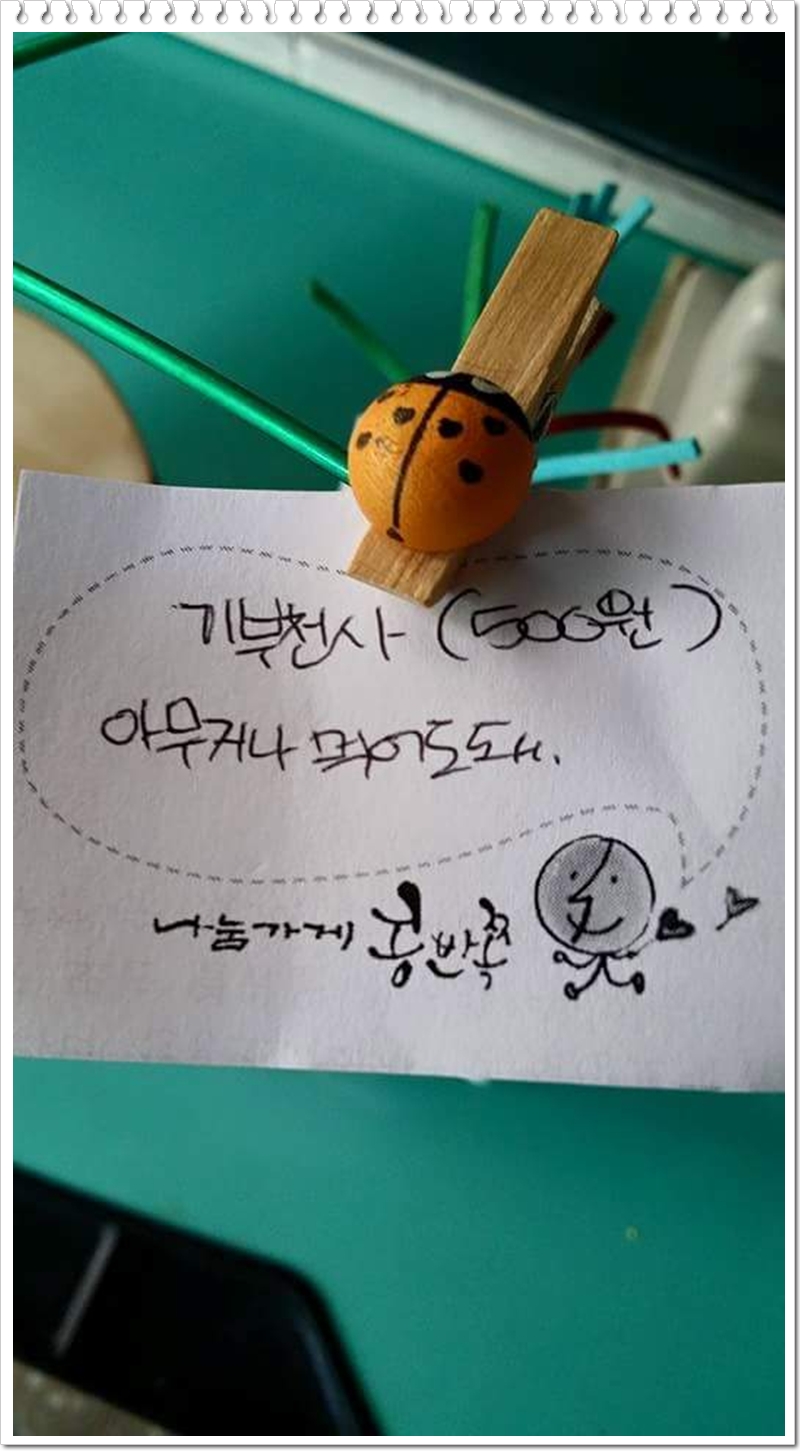 기부천사 (500원)
아무거나 먹어도 돼.
나눔가게 콩반쪽